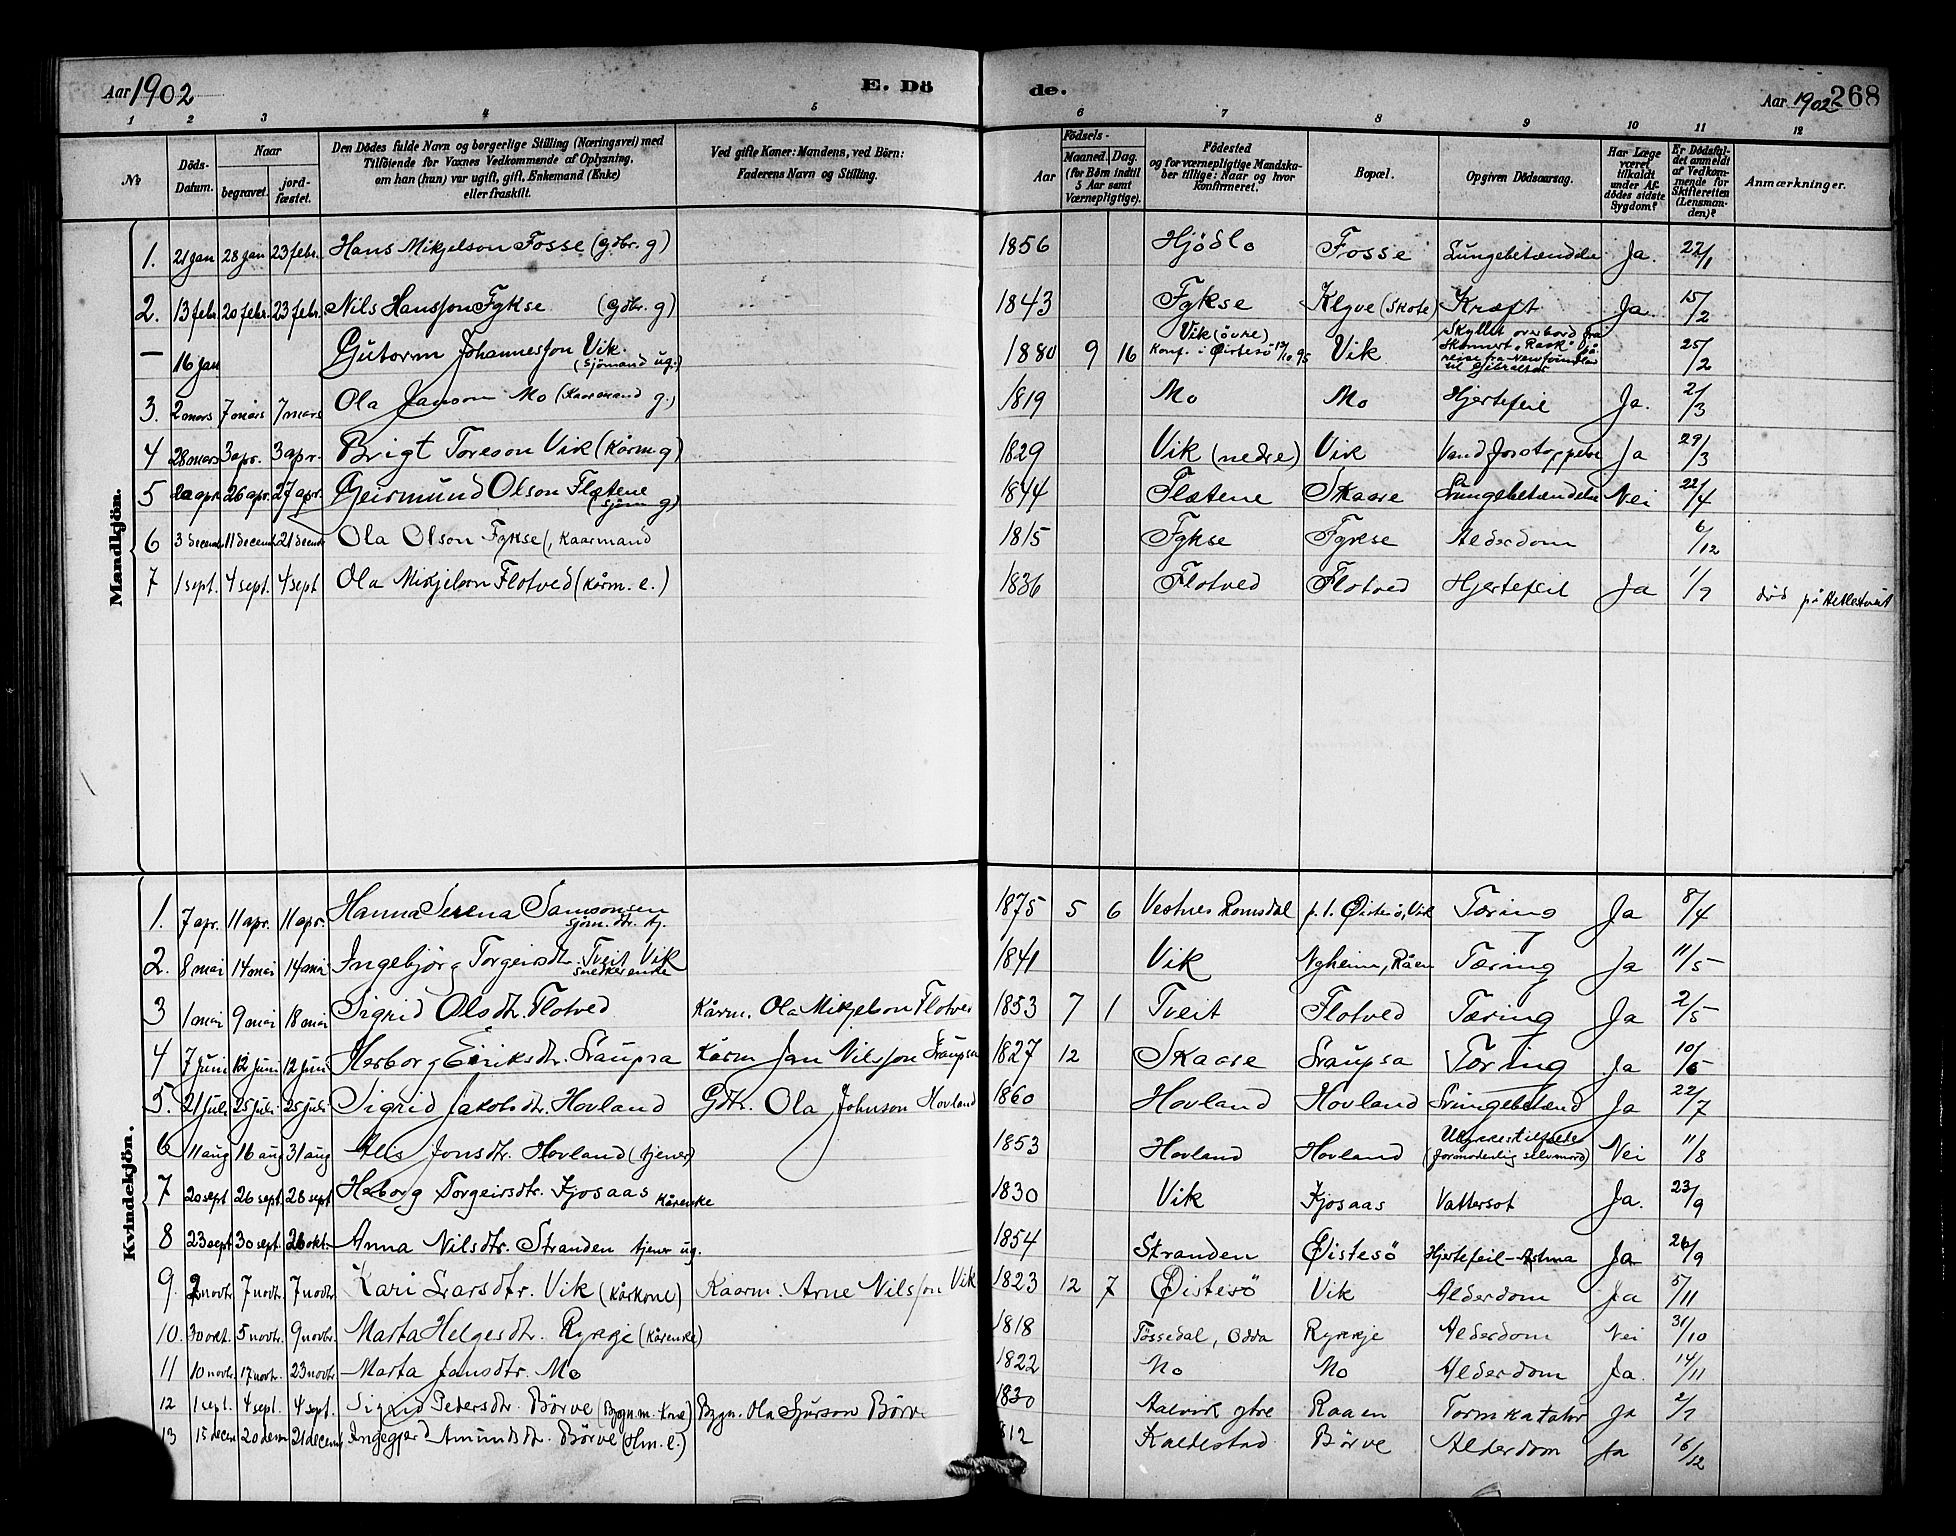 Aar 1902 E. Dö de. Aar 1902 268
1 2 3 4 5 6 7 8 9 10 11 12
№ Döds-Datum. Naar begravet. jord-fæstet. Den Dödes fulde Navn og borgerlige Stilling (Næringsvei) med Tilföiende for Voxnes Vedkommende af Oplysning, om han (hun) var ugift, gift, Enkemand (Enke) eller fraskilt. Ved gifte Koner: Mandens, ved Börn: Faderens Navn og Stilling. Födsels- Aar Maaned. Dag. (for Börn indtil 5 Aar samt Værnepligtige). Födested og for værnepligtige Mandska-ber tillige: Naar og hvor konfirmeret. Bopæl. Opgiven Dödsaarsag. Har Læge været tilkaldt under Af-dödes sidste Sygdom? Er Dödsfal-det anmeldt af Vedkom-mende for Skifteretten (Lensman-den)? Anmærkninger.
Mandkjön.
1. 21 jan 28 jan 23 febr. Hans Mikjelson Fosse (gdbr. g) 1856 Hjödlo Fosse Lungebetændelse Ja. 22/1
2. 13 febr. 20 febr. 23 febr. Nils Hansson Fykse (gdbr. g) 1843 Fykse Klyve (Skote) Kræft Ja. 15/2
— 16 jan Gutorm Johannesson Vik (sjömand ug.) 1880 9 16 Vik (övre) Konf. i Öistesö 13/10 95 Vik Skyllet overbord fra Skonnert "Rask" på reise fra Newfoundland til Gibraltar 25/2
3. 2 mars 7 mars 7 mars Ola Janson Mo (Kaarmand g.) 1819 Mo Mo Hjertefeil Ja. 2/3
4 28 mars 3 apr. 3 apr. Brigt Toreson Vik (Kårm g) 1829 Vik (nedre) Vik Vandforstoppelse Ja 29/3
5 20 apr. 26 apr. 27 apr. Geirmund Olson Flætene (sjöm g) 1844 Flætene Skaare Lungebetændelse Nei 22/4
6 3 decem 11 decemb 21 decemb Ola Olson Fykse (, Kaarmand 1815 Fykse Fykse Alderdom 6/12
7 1 sept. 4 sept. 4 sept Ola Mikjelson Flotved (Kårm. e.) 1836 Flotved Flotved Hjertefeil Ja 1/9 död på Hetletveit
Kvindekjön.
1. 7 apr. 11 apr. 11 apr. Hanna Serena Samsonsen sjöm. dtr. tj. 1875 5 6 Vestnes Romsdal p. t. Öistesö, Vik Tæring Ja 8/4
2. 8 mai 14 mai 14 mai Ingebjörg Torgeirsdtr. Tveit Vik snedkerenke 1841 Vik Nyheim, Råen Tæring Ja 11/5
3 1 mai 9 mai 18 mai Sigrid Olsdtr. Flotved Kårm. Ola Mikjelson Flotved 1853 7 1 Tveit Flotved Tæring Ja 2/5
4 7 juni 12 juni 12 juni Herborg Eiriksdtr. Laupsa Kårm Jan Nilsson Laupsa 1827 12 Skaare Laupsa Tæring Ja 10/6
5. 21 juli 25 juli 25 juli Sigrid Jakobsdtr. Hovland Gdbr. Ola Johnson Hovland 1860 Hovland Hovland Lungebetænd Ja 22/7
6 11 aug 16 aug 31 aug Jonsdtr. Hovland (tjener) 1853 Hovland Hovland Ulykkestilfælde (formodentlig selvmord) Nei 11/8
7 20 sept 26 sept. 28 sept Herborg Torgeirsdtr. Kjosaas Kårenke 1830 Vik Kjosaas Vattersot Ja. 23/9
8 23 sept 30 sept. 26 okt. Anna Nilsdtr. Stranden tjener ug. 1854 Stranden Öistesö Hjertefeil-Astma Ja 26/9
9. 2 novbr. 7 novbr. 7 novbr Kari Larsdtr. Vik (Kårkone) Kaarm. Arne Nilsson Vik 1823 12 7 Öistesö Vik Alderdom Ja 5/11
10. 30 okt. 5 novbr. 9 novbr. Marta Helgesdtr. Rykkje (Kårenke) 1818 Tössedal, Odda Rykkje Alderdom Nei 31/10
11 10 novbr. 17 novbr. 23 novbr Marta Jansdtr. Mo 1822 Mo Mo Alderdom Ja. 14/11
12 1 sept. 4 sept. 4 sept. Sigrid Pedersdtr. Börve (Bygn.m. Kone) Bygn. Ola Sjurson Börve 1830 Aalvik ytre Raaen Tarmkatahr Ja 2/9
13 15 decem 20 decem 21 decem Ingegjerd Amundsdtr. Börve (e.) 812 Kaldestad Börve Alderdom Ja 16/12